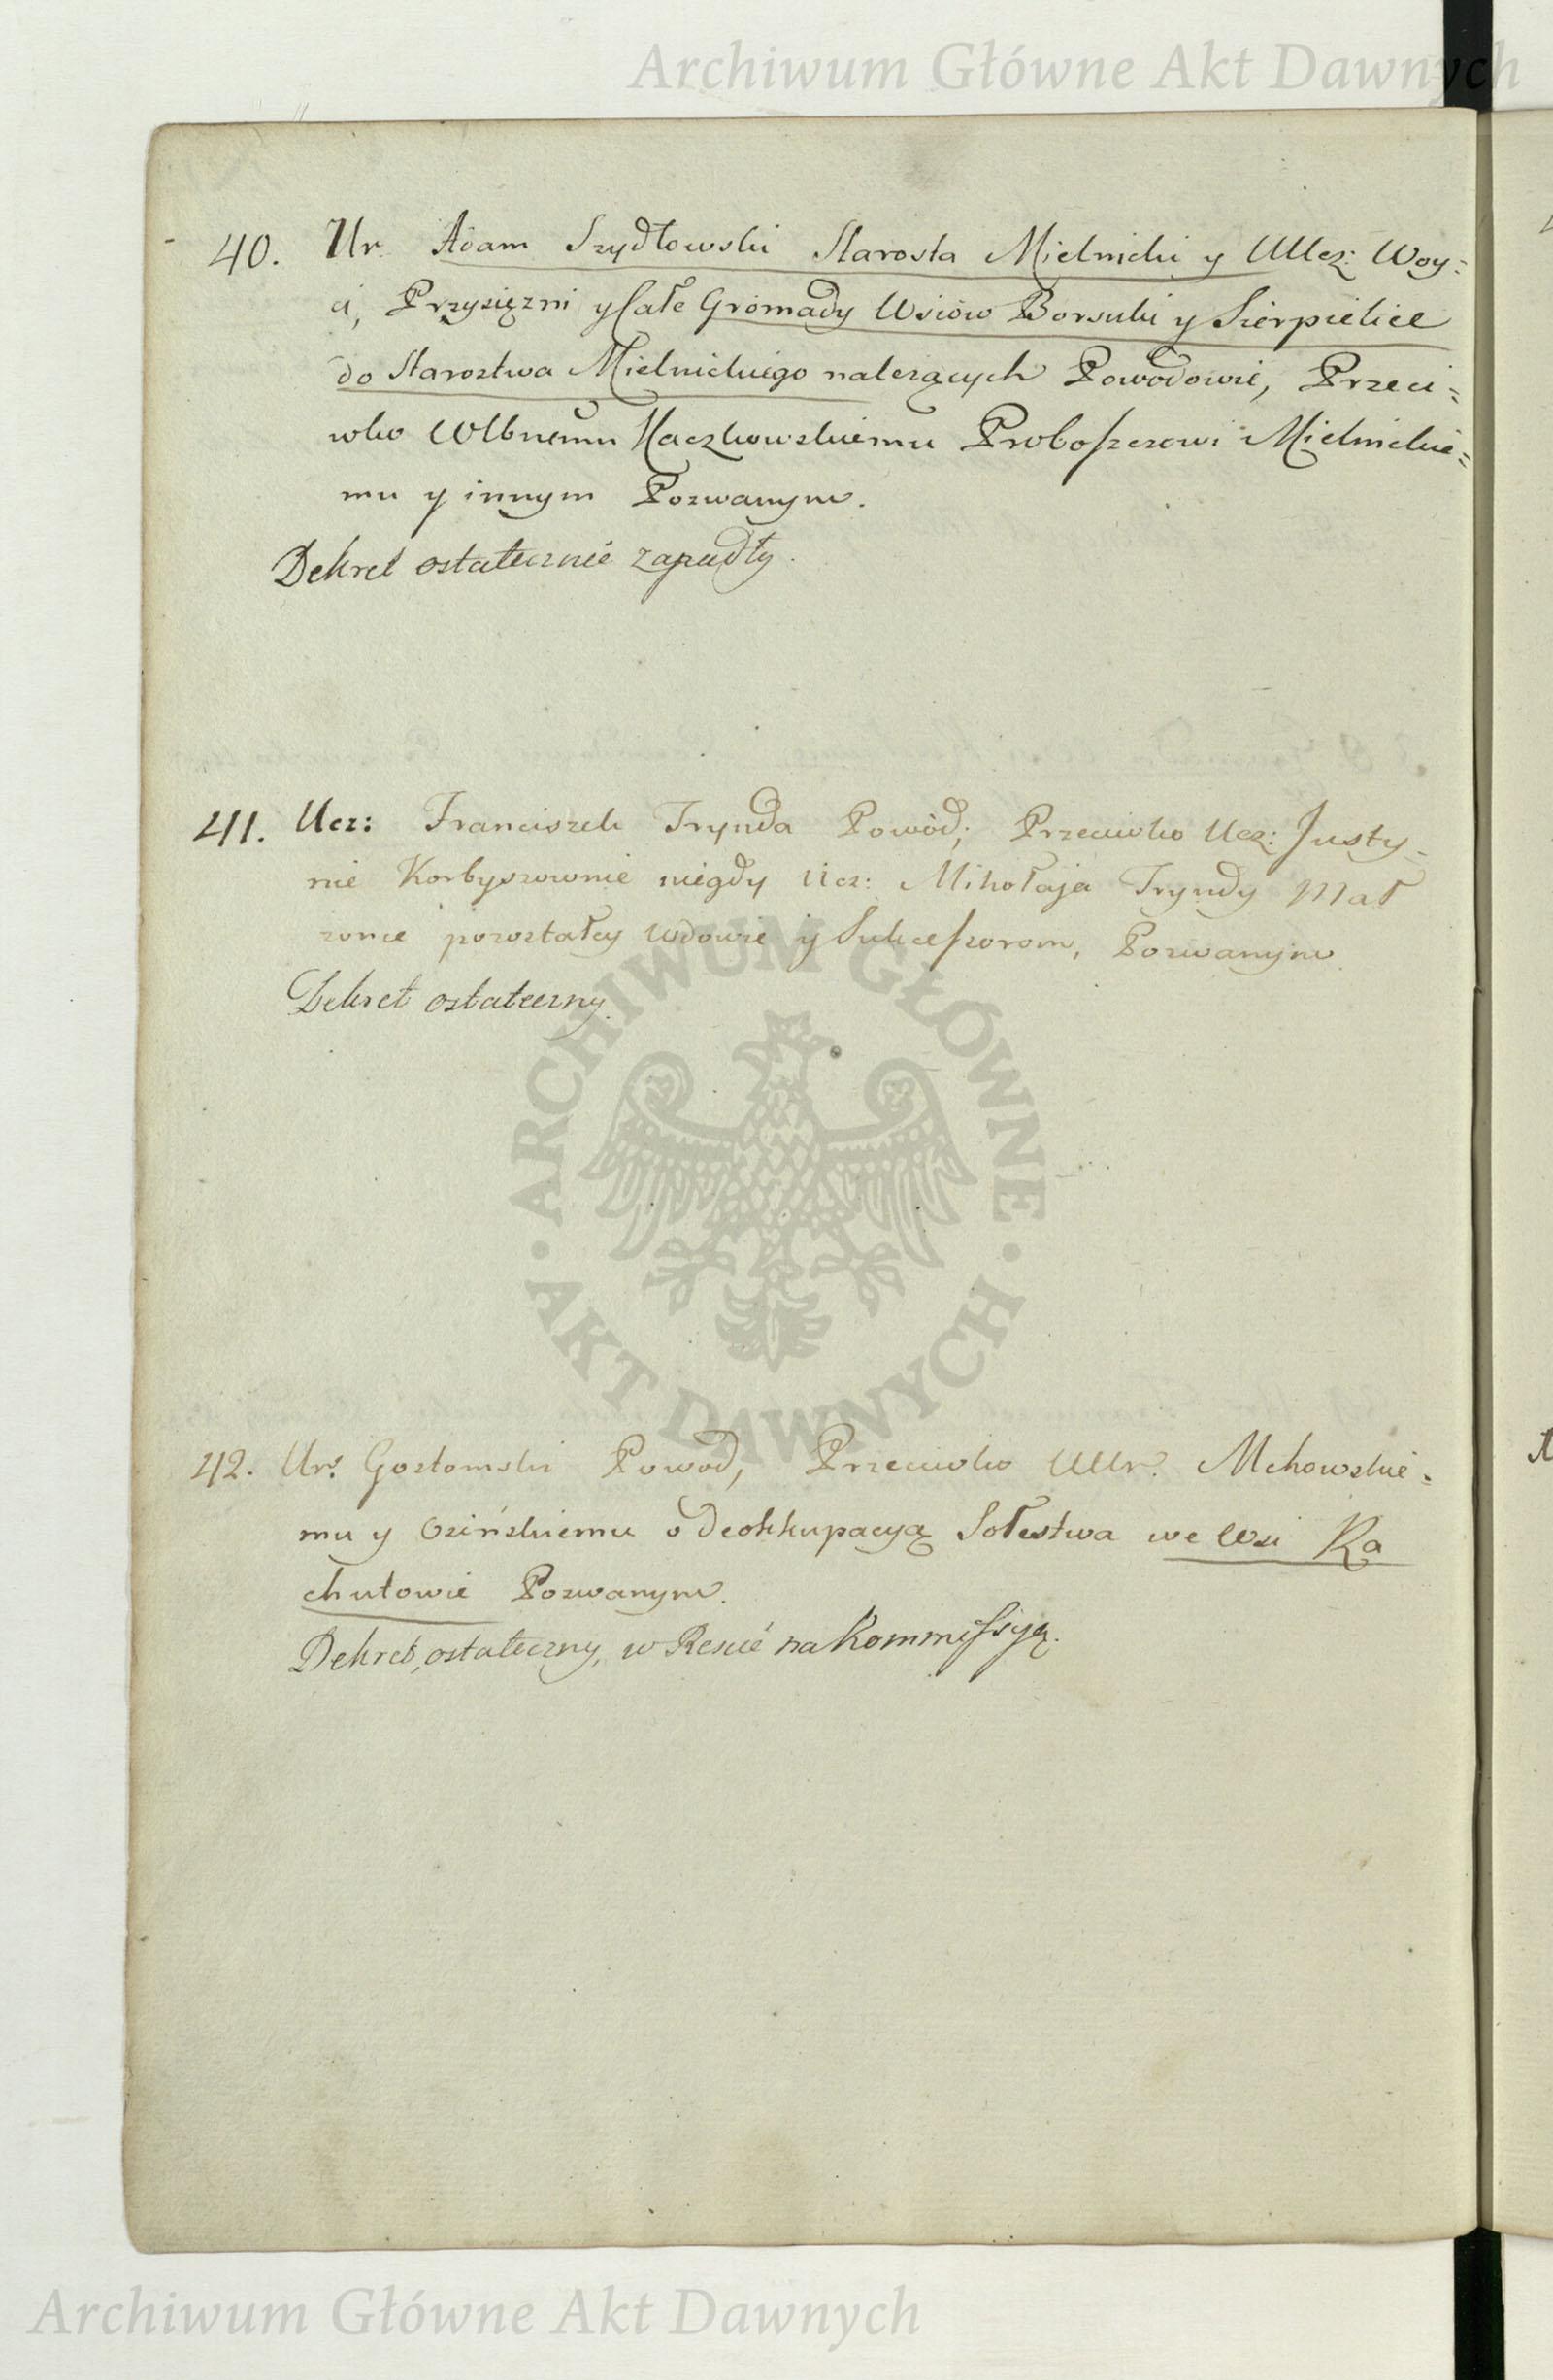 Archiwum Główne Akt Dawnych
40. Ur. Adam Szydłowski Starosta Mielnicki y UUcz: Woy=
ci, Przysięzni y Całe Gromady Wsiów Borsuki y Sierpielice
do Starostwa Mielnickiego nalezących Powodowie, Przeci=
wko Wlbnemu Kaczkowskiemu Proboszczowi Mielnickie=
mu y innym Pozwanym.
Dekret ostatecznie zapadły.
41. Ucz: Franciszek Trynda Powód; Przeciwko Ucz: Justy=
nie Korbyszownie niegdy Ucz: Mikołaja Tryndy Mał
zonce pozostałey Wdowie y Sukcessorom, Pozwanym
Dekret ostateczny.
ARCHIWUM GŁÓWNE AKT DAWNYCH
42. Ur. Gostomski Powod, Przeciwko UUr. Mchowskie=
mu y Osińskiemu o Deokkupacyą Sołestwa we Wsi Ra
chutowie Pozwanym.
Dekret, ostateczny, w Rescie na Kommissyą.
Archiwum Główne Akt Dawnych